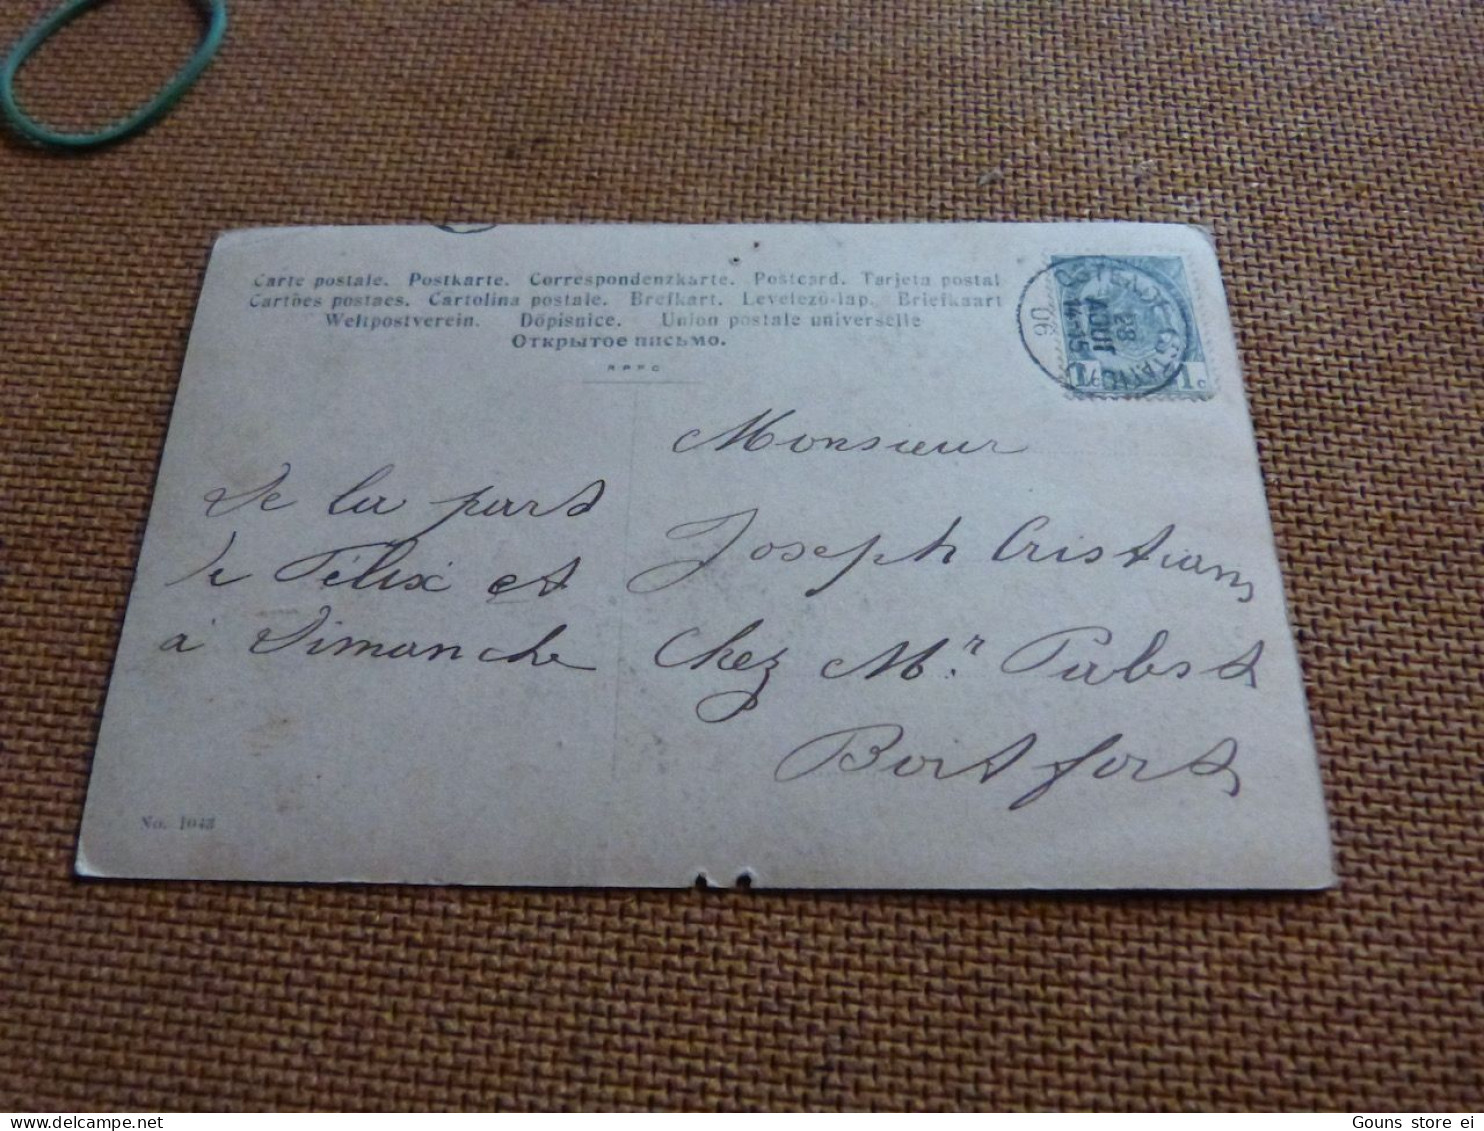 Carte postale. Postkarte. Correspondenzkarte. Postcard. Tarjeta postal
Cartões postaes. Cartolina postale. Brefkart. Levelezö-lap. Briefkaart
Weltpostverein. Dopisnice. Union postale universelle
Открытое письмо.
R P P C
OSTENDE (STATION)
28
AOUT
14-15
06
1c 1c
Monsieur
Joseph Cristians
Chez Mr. Pabst
Boitsfort
De la part
de Félix et
à Dimanche
No. 1043
Gouns store ei